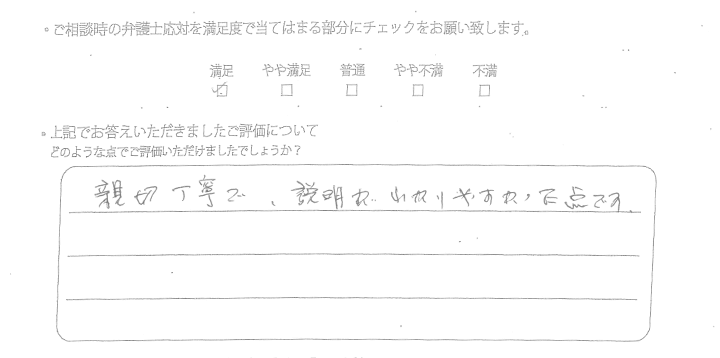 ・ご相談時の弁護士応対を満足度で当てはまる部分にチェックをお願い致します。
満足 やや満足 普通 やや不満 不満
・上記でお答えいただきましたご評価について
どのような点でご評価いただけましたでしょうか？
親切丁寧で、説明がわかりやすかった点です。